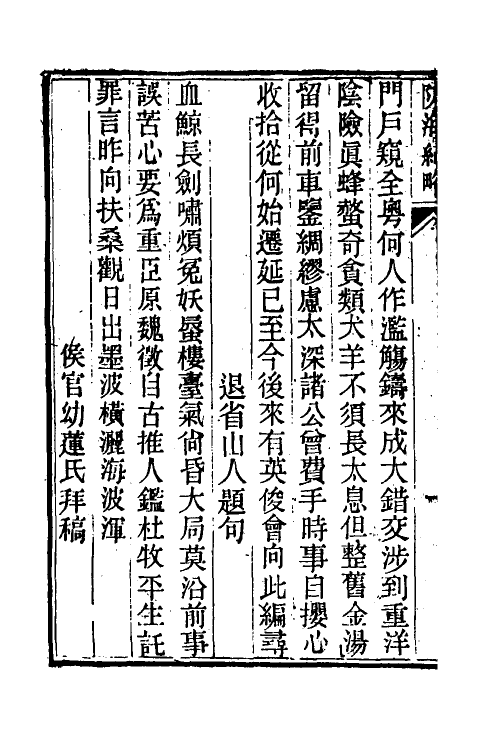 防海紀略
門戶窺全粵何人作濫觴鑄來成大錯交涉到重洋
陰險眞蜂蠆奇貪類犬羊不須長太息但整舊金湯
留得前車鑒綢繆慮太深諸公曾費手時事自攖心
收拾從何始遷延已至今後來有英俊會向此編尋
退省山人題句
血鯨長劍嘯煩冤妖蜃樓臺氣尙昏大局莫沿前事
誤苦心要爲重臣原魏徵自古推人鑑杜牧平生託
罪言昨向扶桑觀日出墨波橫灑海波渾
侯官幼蓮氏拜稿